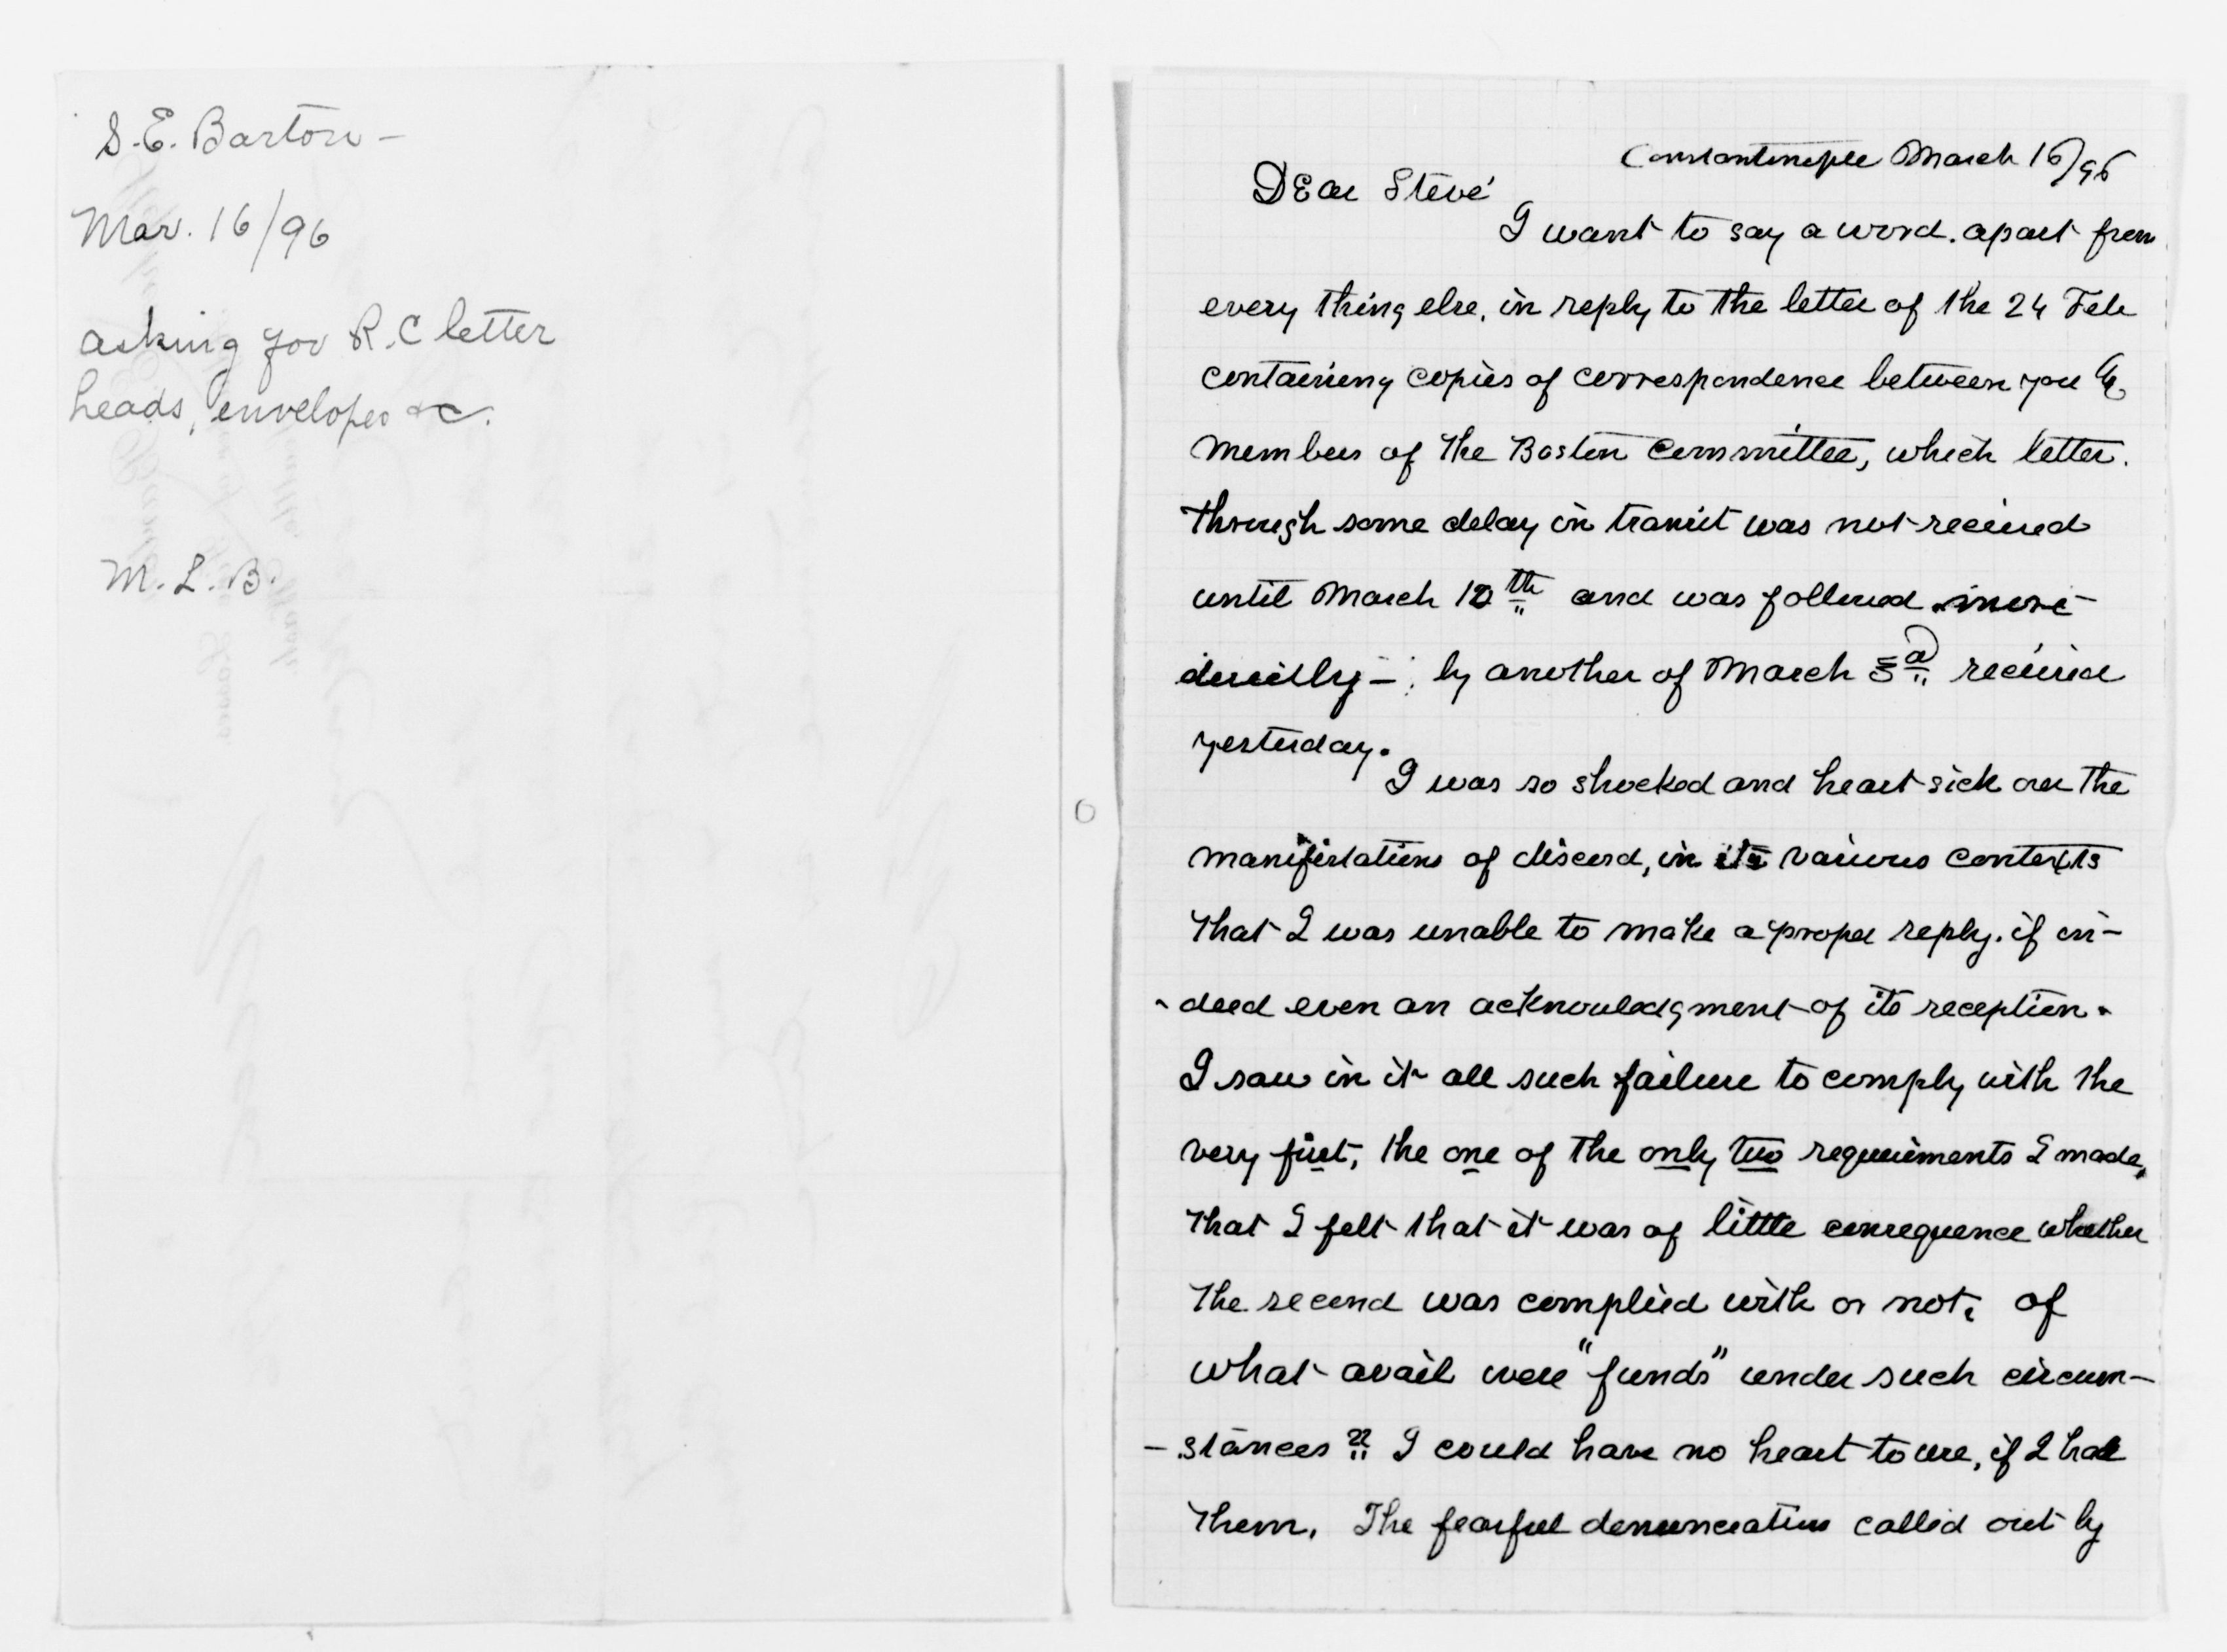 S. E. Barton —
Mar. 16/96
asking for R. C letter
heads, envelopes &c.
M. L. B.
Constantinople March 16/96
Dear Steve'
I want to say a word. apart from
every thing else, in reply to the letter of the 24 Feb
containing copies of correspondence between you &
members of the Boston Committee, which letter.
through some delay in transit was not received
until March 12th and was followed more
directly - by another of March 3d received
yesterday.
I was so shocked and heart sick over the
manifestations of discord, in its various contexts
that I was unable to make a proper reply. if in-
- deed even an acknowledgment of its reception.
I saw in it all such failure to comply with the
very first, the one of the only two requirements I made,
that I felt that it was of little consequence whether
the second was complied with or not, of
what avail were "funds" under such circum-
- stances ? I could have no heart to use, if I had
them. The fearful denunciation called out by